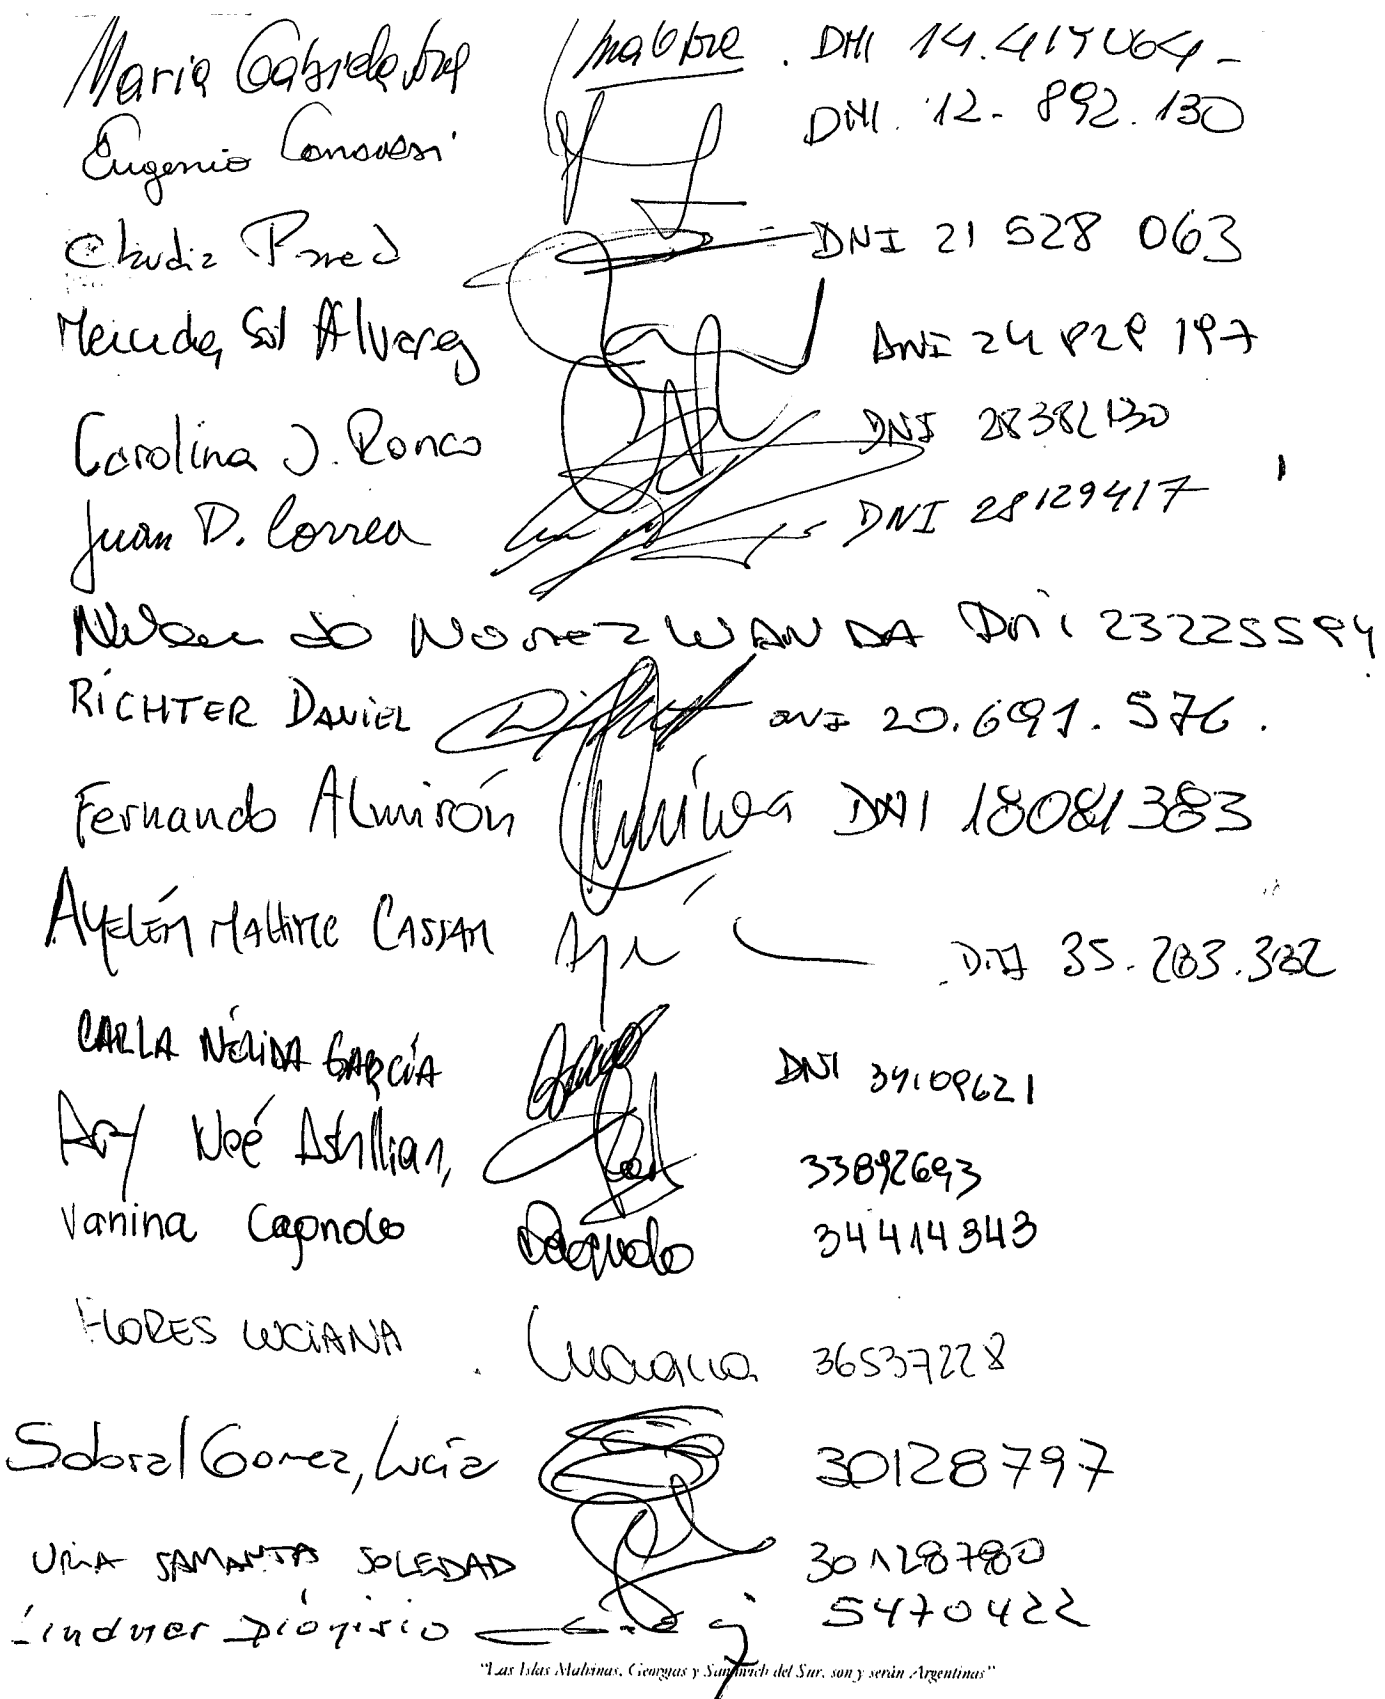 Maria Gabriela DNI 14.417064-
Eugenio Canovesi DNI. 12-892.130
Claudia DNI 21 528 063
Sol Alvarez DNI 24 828 197
Carolina J. Ronco DNI 28382130
Juan D. Correa DNI 28129417
WANDA DNI 23225594
RICHTER DANIEL DNI 20.691.576.
Fernando Almirón DNI 18081383
AYELÉN CASSAN DNI 35.283.382
CARLA NÉLIDA GARCÍA DNI 34109621
Noé 33892693
Vanina Cagnolo 34414343
FLORES LUCIANA Luciana 36537228
Sobral Gomez, Lucía 30128797
SAMANTA SOLEDAD 30128780
Lindner Dionisio 5470422
"Las Islas Malvinas, Georgias y Sandwich del Sur, son y serán Argentinas"